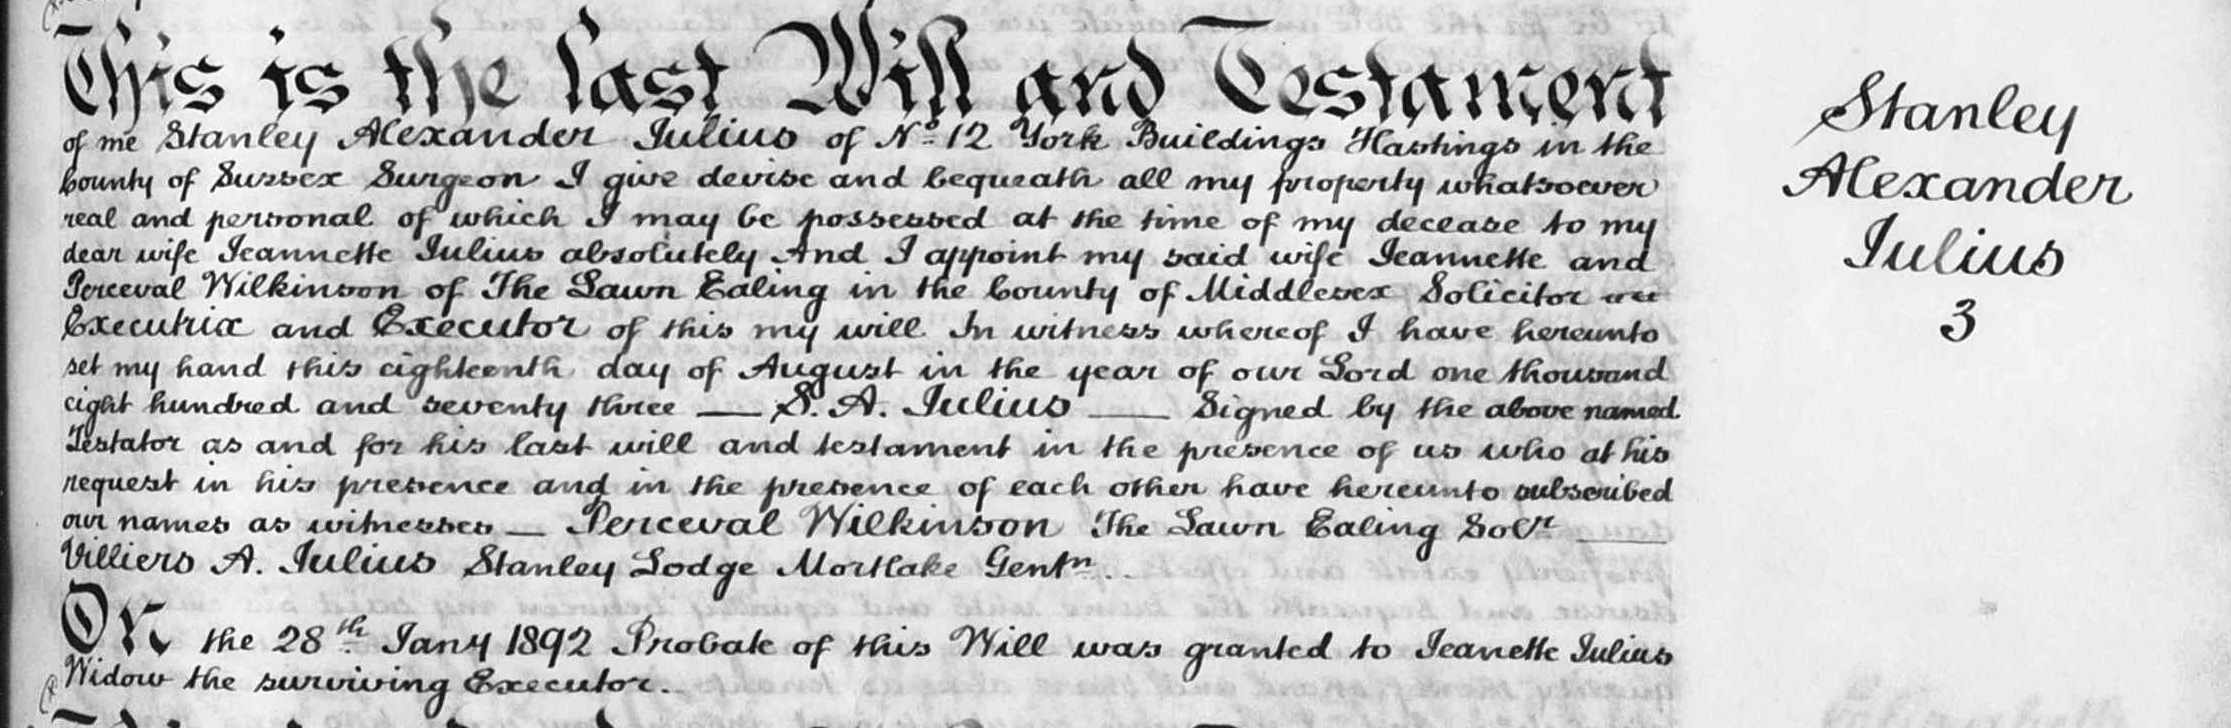 This is the last Will and Testament
of me Stanley Alexander Julius of No. 12 York Buildings Hastings in the
County of Sussex Surgeon I give devise and bequeath all my property whatsoever
real and personal of which I may be possessed at the time of my decease to my
dear wife Jeannette Julius absolutely And I appoint my said wife Jeannette and
Perceval Wilkinson of The Lawn Ealing in the County of Middlesex Solicitor
Executrix and Executor of this my will In witness whereof I have hereunto
set my hand this eighteenth day of August in the year of our Lord one thousand
eight hundred and seventy three — S. A. Julius — Signed by the above named
Testator as and for his last will and testament in the presence of us who at his
request in his presence and in the presence of each other have hereunto subscribed
our names as witnesses — Perceval Wilkinson The Lawn Ealing Solr —
Villiers A. Julius Stanley Lodge Mortlake Gentn.
On the 28th Jany 1892 Probate of this Will was granted to Jeanette Julius
Widow the surviving Executor.
Stanley
Alexander
Julius
3